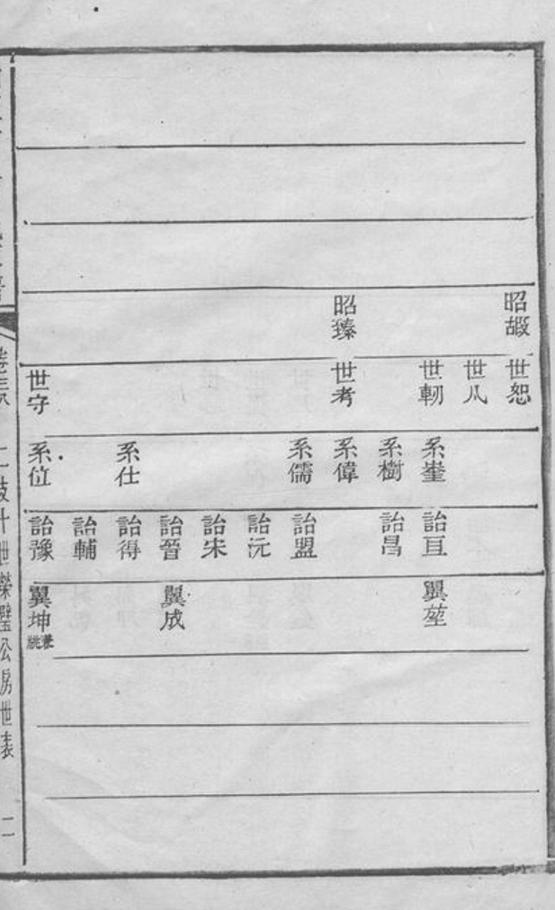 昭嘏
昭臻
世恕
世爪
世軔
世考
世守
系崋
系樹
系偉
系儒
系仕
系位
詒亘
詒昌
詒盟
詒沅
詒宋
詒晉
詒得
詒輔
詒豫
翼堃
翼成
翼坤兼祧
二枝十世榮璧公房世表
二